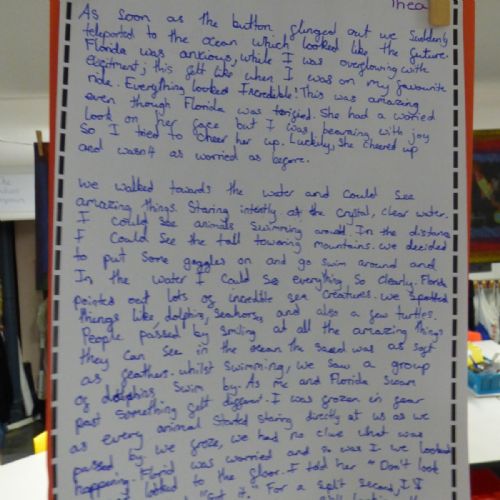 Thea
As soon as the button glinged out we suddenly
teleported to the ocean which looked like the future.
Florida was anxious, while I was overglowing with
excitment; this felt like when I was on my favourite
ride. Everything looked Incredible! This was amazing
even though Florida was terified. She had a worried
look on her face but I was beaming with joy
So I tried to cheer her up. Luckily, she cheered up
and wasn't as worried as before.
We walked towards the water and could see
amazing things. Staring intently at the crystal, clear water.
I could see animals swimming around. In the distance
I could see the tall towering mountains. We decided
to put some goggles on and go swim around and
In the water I could see everything so clearly. Florida
pointed out lots of incredible sea creatures. We spotted
things like dolphins, seahorses, and also a few turtles.
People passed by smiling at all the amazing things
they can see in the ocean the sand was as soft
as feathers. Whilst swimming, we saw a group
of dolphins swim by. As me and Florida swam
past something felt different. I was frozen in fear
as every animal started staring directly at us as we
passed by. We froze, we had no clue what was
happening. Florida was worried and so was I we looked
I looked to the floor. I told her "Don't look
For a split second, I